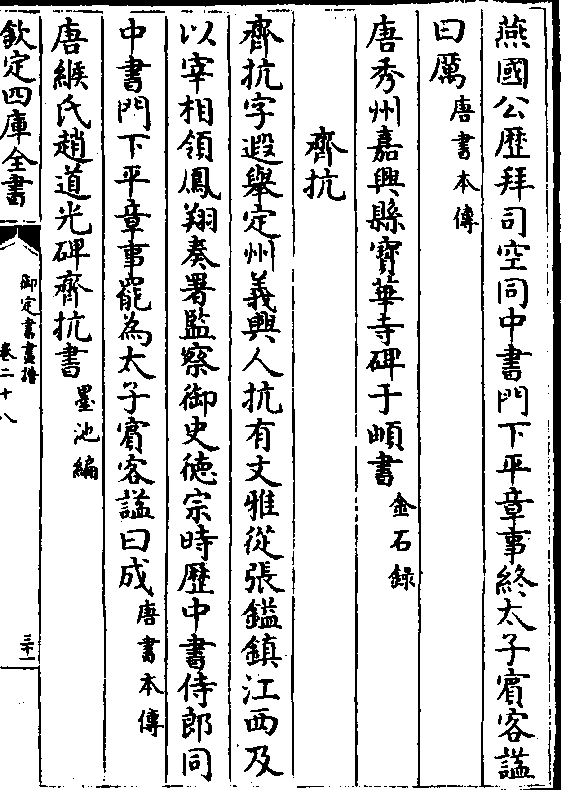 燕國公歴拜司空同中書門下平章事終太子賓客諡
曰厲唐書本傳
唐秀州嘉興縣寶華寺碑于頔書金石録
齊抗
齊抗字遐舉定州義興人抗有文雅從張鎰鎮江西及
以宰相領鳳翔奏署監察御史徳宗時歴中書侍郎同
中書門下平章事罷為太子賓客諡曰成唐書本傳
唐緱氏趙道光碑齊抗書墨池編
欽定四庫全書
御定書畫譜
卷二十八
三十一